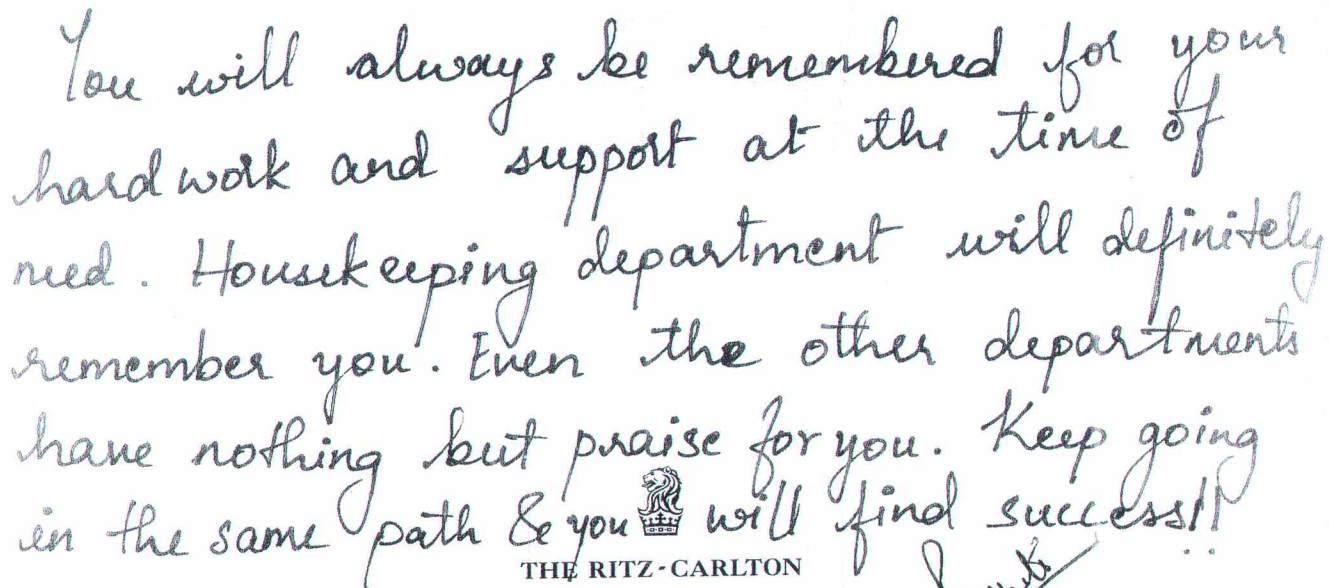 You will always be remembered for your
hardwork and support at the time of
need. Housekeeping department will definitely
remember you. Even the other departments
have nothing but praise for you. Keep going
in the same path & you will find success!!
THE RITZ-CARLTON